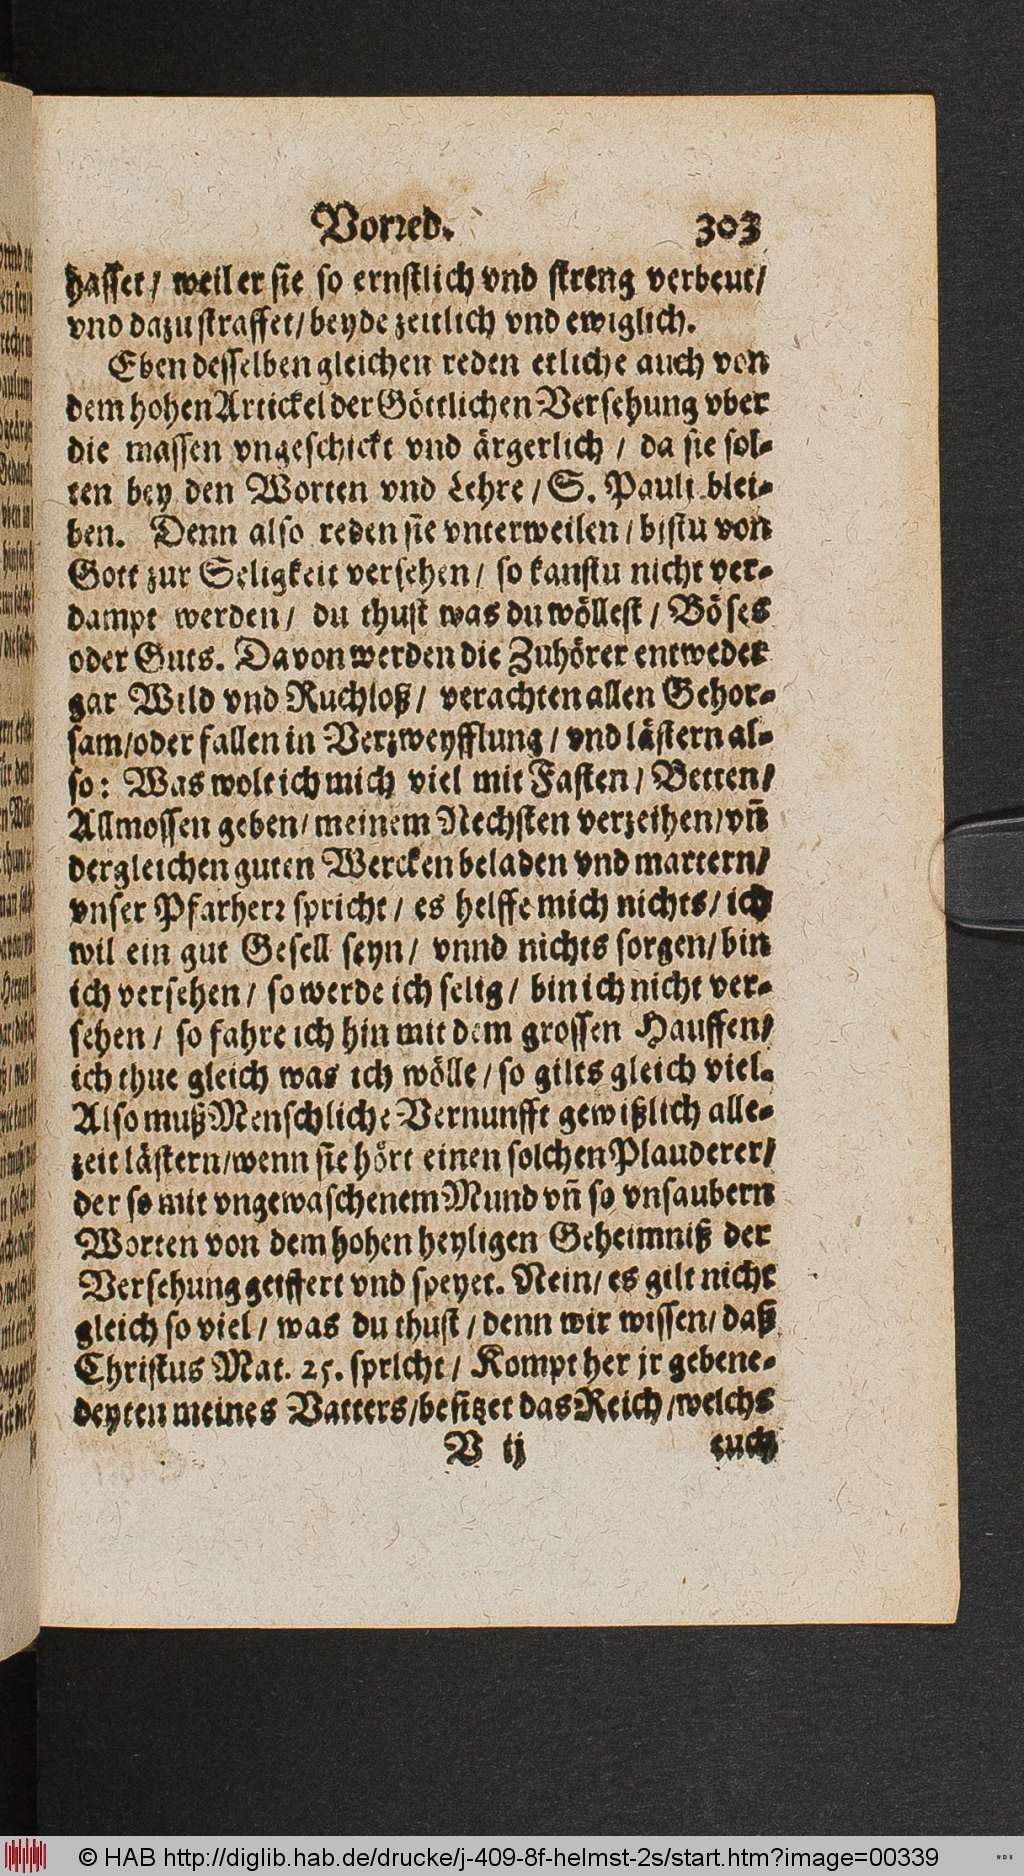 Vorred. 303
hasset / weil er sie so ernstlich vnd streng verbeut /
vnd dazu straffet / beyde zeitlich vnd ewiglich.
Eben desselben gleichen reden etliche auch von
dem hohen Artickel der Göttlichen Versehung vber
die massen vngeschickt vnd ärgerlich / da sie sol-
ten bey den Worten vnd Lehre / S. Pauli blei-
ben. Denn also reden sie vnterweilen / bistu von
Gott zur Seligkeit versehen / so kanstu nicht ver-
dampt werden / du thust was du wöllest / Böses
oder Guts. Davon werden die Zuhörer entweder
gar Wild vnd Ruchloß / verachten allen Gehor-
sam / oder fallen in Verzweyfflung / vnd lästern al-
so: Was wolt ich mich viel mit Fasten / Betten /
Allmossen geben / meinem Nechsten verzeihen / vñ
dergleichen guten Wercken beladen vnd martern /
vnser Pfarherr spricht / es helffe mich nichts / ich
wil ein gut Gesell seyn / vnnd nichts sorgen / bin
ich versehen / so werde ich selig / bin ich nicht ver-
sehen / so fahre ich hin mit dem grossen Hauffen /
ich thue gleich was ich wölle / so gilts gleich viel.
Also muß Menschliche Vernunfft gewißlich alle-
zeit lästern / wenn sie hört einen solchen Plauderer /
der so mit vngewaschenem Mund vñ so vnsaubern
Worten von dem hohen heyligen Geheimniß der
Versehung geiffert vnd speyet. Nein / es gilt nicht
gleich so viel / was du thust / denn wir wissen / daß
Christus Mat. 25. spricht / Kompt her jr gebene-
deyten meines Vatters / besitzet das Reich / welchs
V ij euch
© HAB http://diglib.hab.de/drucke/j-409-8f-helmst-2s/start.htm?image=00339